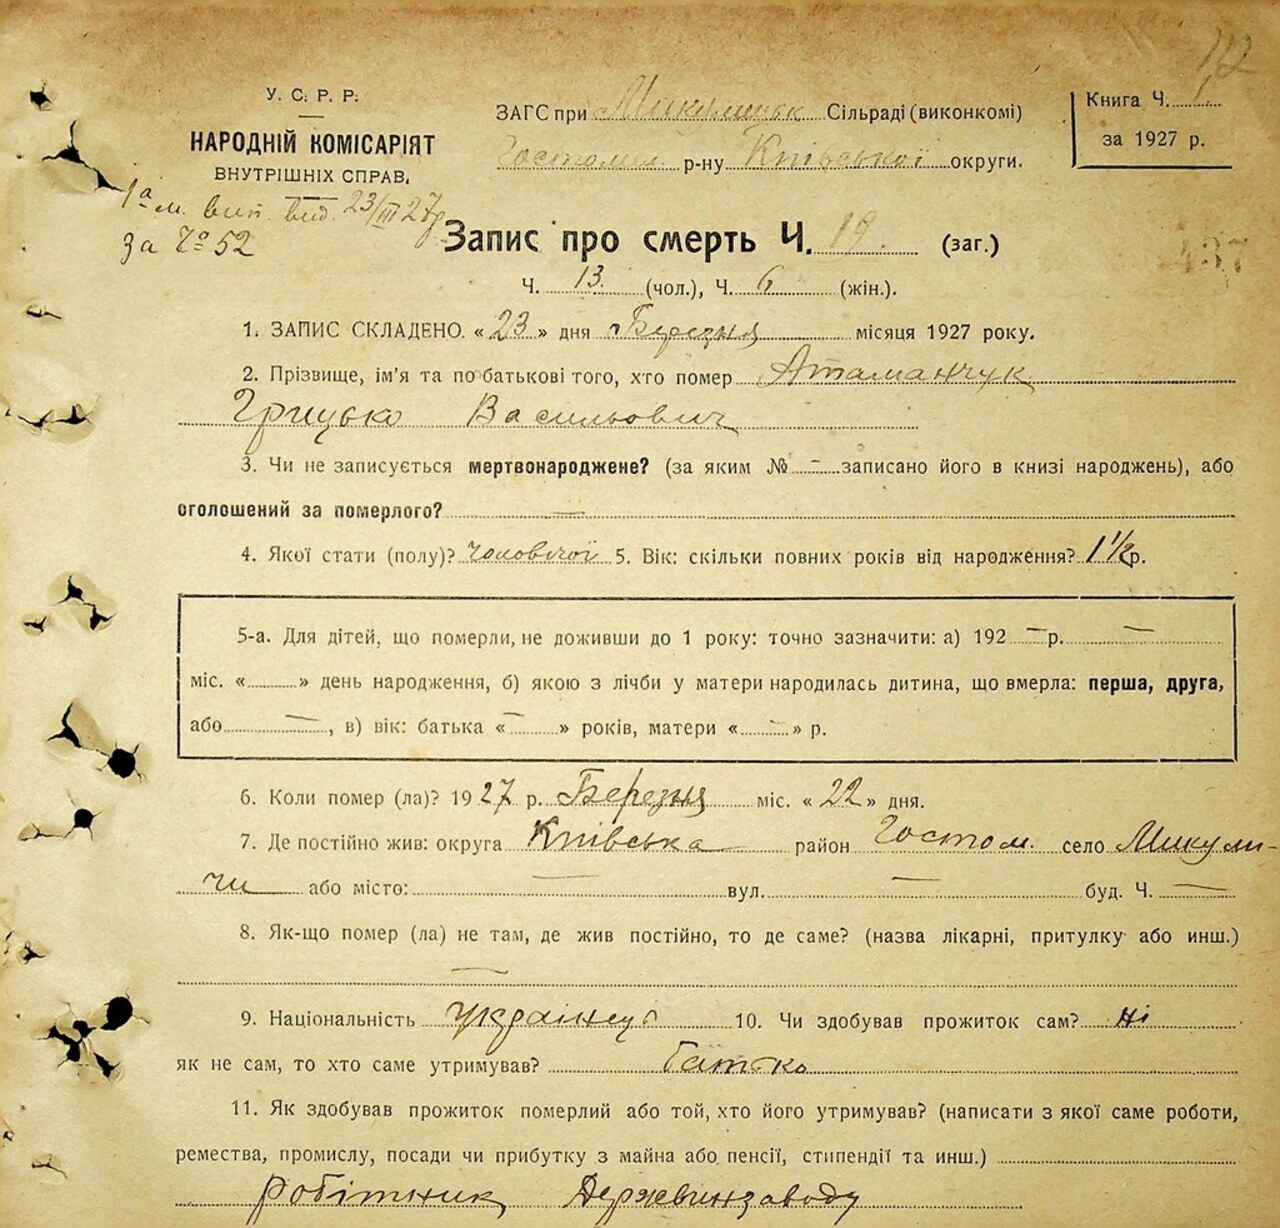 112
У. С. Р. Р.
НАРОДНІЙ КОМІСАРІЯТ
ВНУТРІШНІХ СПРАВ.
ЗАГС при Микулицьк Сільраді (виконкомі)
Гостомел. р-ну Київської округи.
Книга Ч. 1
за 1927 р.
1а м. вип. вид. 23/III 27р
за № 52
Запис про смерть Ч. 19. (заг.)
Ч. 13. (чол.), Ч. 6 (жін.).
1. ЗАПИС СКЛАДЕНО. « 23 » дня Березня місяця 1927 року.
2. Прізвище, ім'я та по батькові того, хто помер Атаманчук
Грицько Васильович
3. Чи не записується мертвонароджене? (за яким № – записано його в книзі народжень), або
оголошений за померлого? —
4. Якої стати (полу)? чоловічої 5. Вік: скільки повних років від народження? 1 1/2 р.
5-а. Для дітей, що померли, не доживши до 1 року: точно зазначити: а) 192 – р. —
міс. « » день народження, б) якою з лічби у матери народилась дитина, що вмерла: перша, друга,
або — , в) вік: батька « – » років, матери « – » р.
6. Коли помер (ла)? 1927 р. Березня міс. « 22 » дня.
7. Де постійно жив: округа Київська район Гостом. село Микули-
чи або місто: — вул. — буд. Ч. —
8. Як-що помер (ла) не там, де жив постійно, то де саме? (назва лікарні, притулку або инш.)
—
9. Національність 10. Чи здобував прожиток сам? ні
як не сам, то хто саме утримував? батько
11. Як здобував прожиток померлий або той, хто його утримував? (написати з якої саме роботи,
ремества, промислу, посади чи прибутку з майна або пенсії, стипендії та инш.)
робітник Державинзаводу